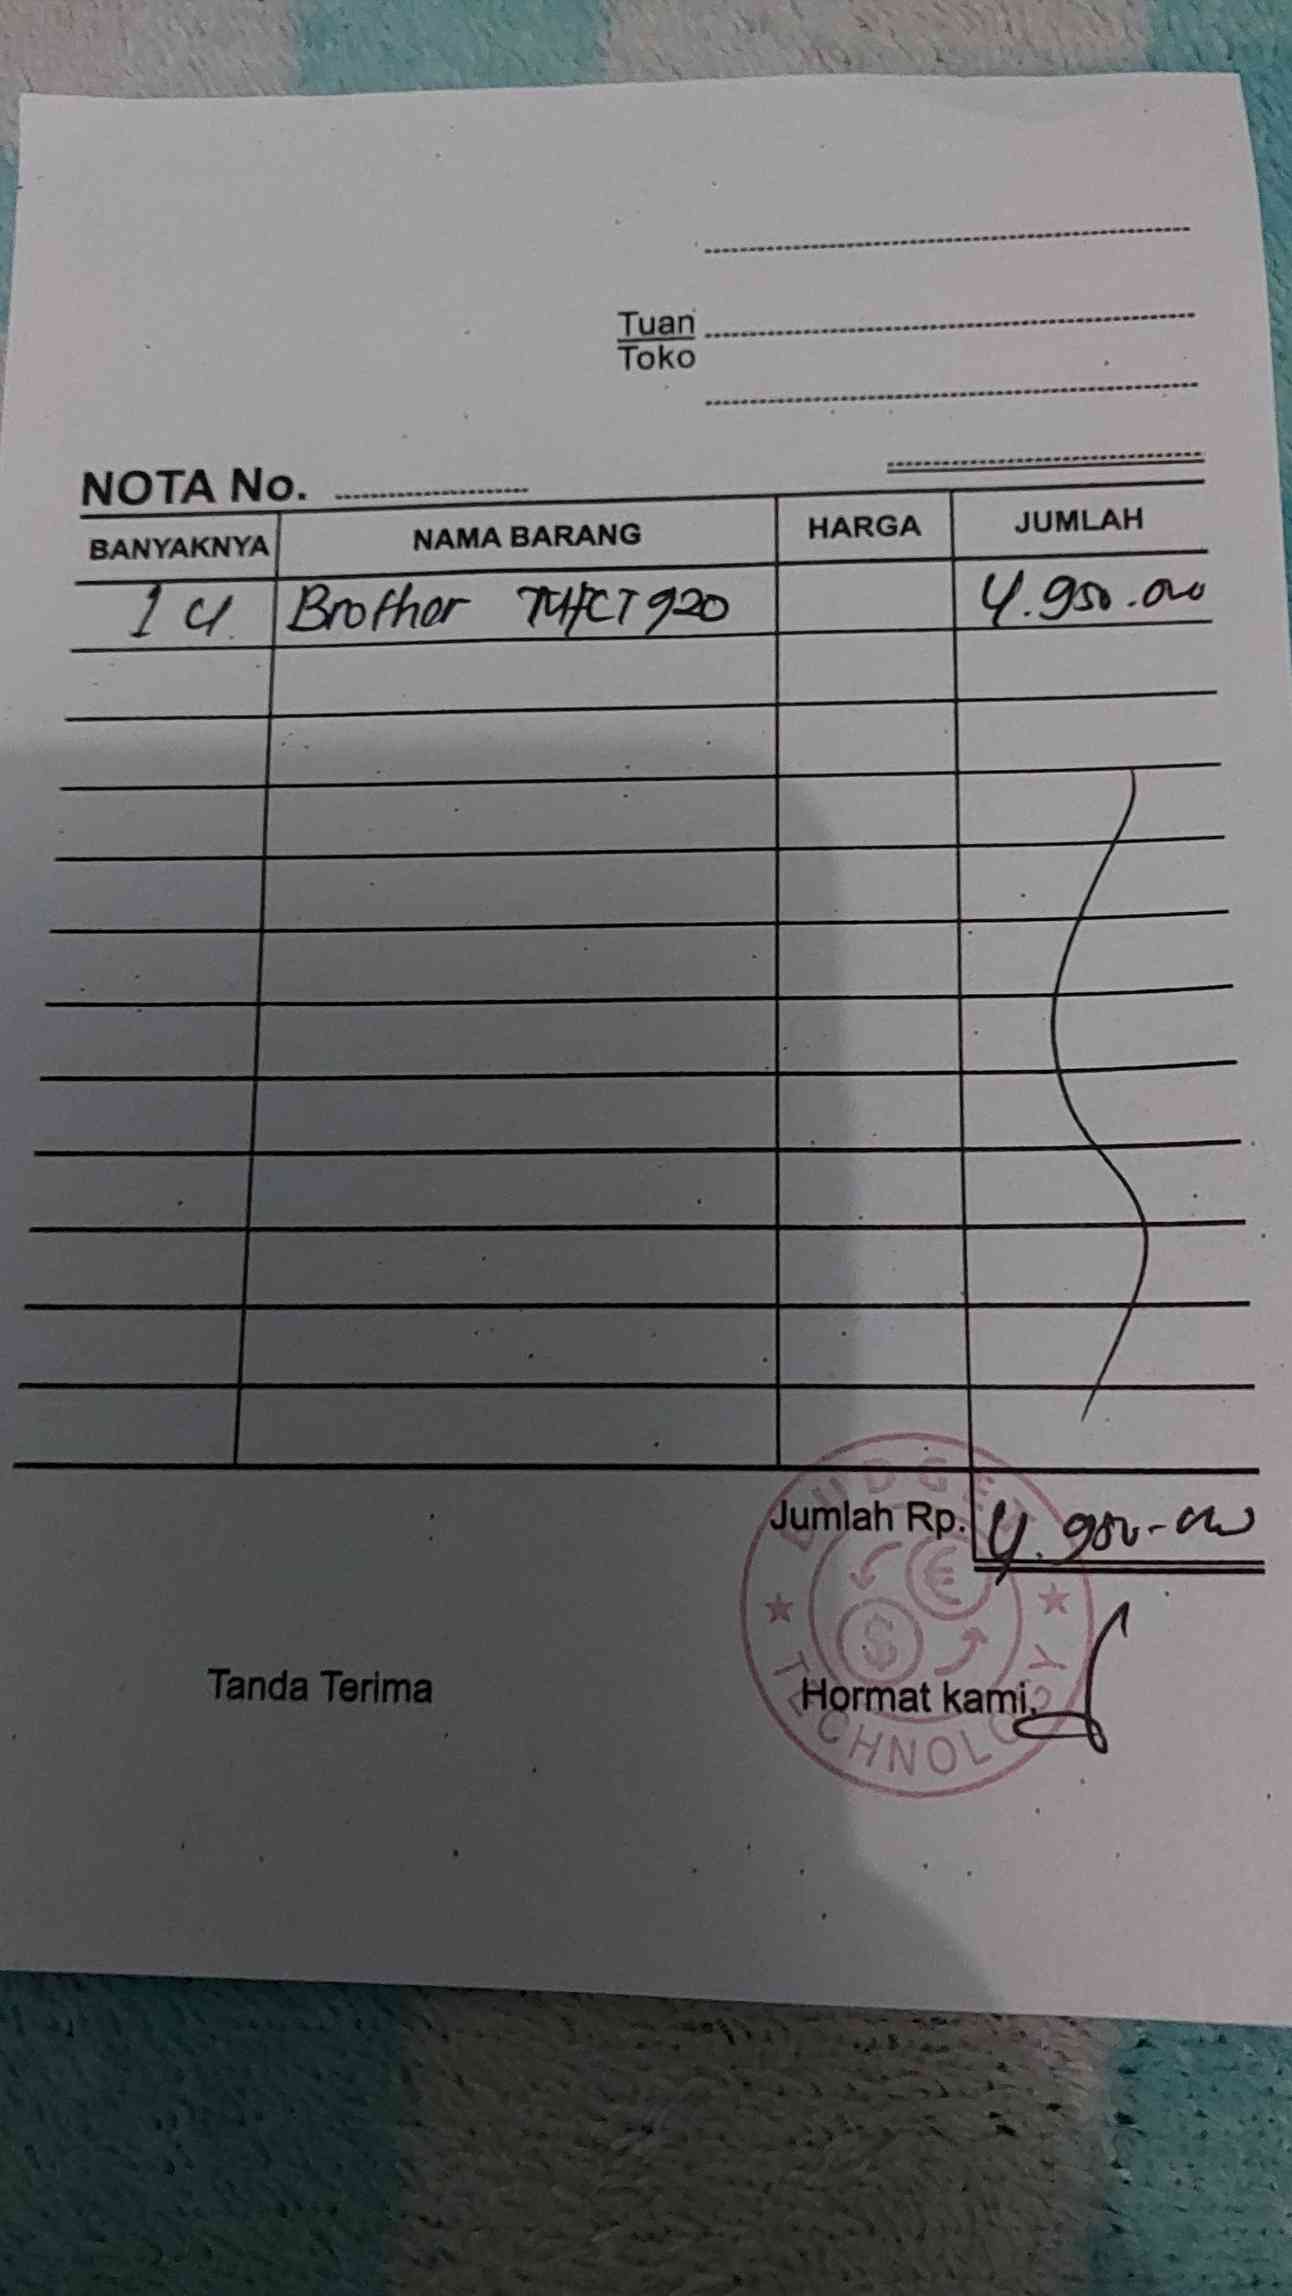 Tuan
Toko
NOTA No.
BANYAKNYA NAMA BARANG HARGA JUMLAH
1 U. Brother T920 4.950.000
Jumlah Rp. 4.950.000
BUDGET
TECHNOLOGY
€
$
Tanda Terima Hormat kami,